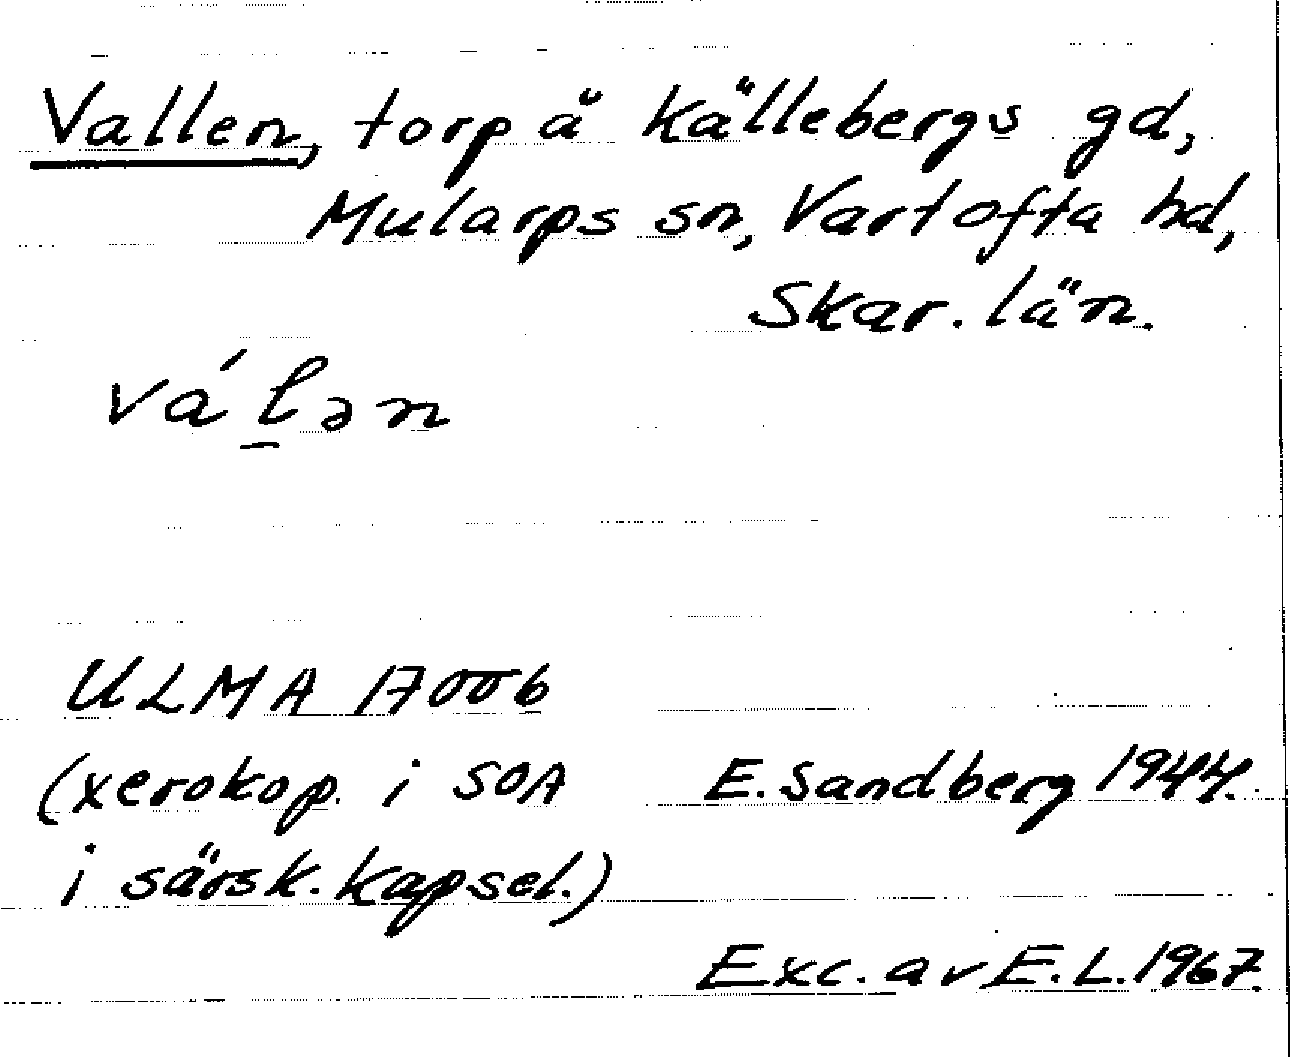 Vallen, torp å Källebergs gd,
Mularps sn, Vartofta hd,
Skar. län.
vál̠ən
ULMA 17006
(xerokop. i SOA E. Sandberg 1944.
i särsk. kapsel.)
Exc. av E. L. 1967.